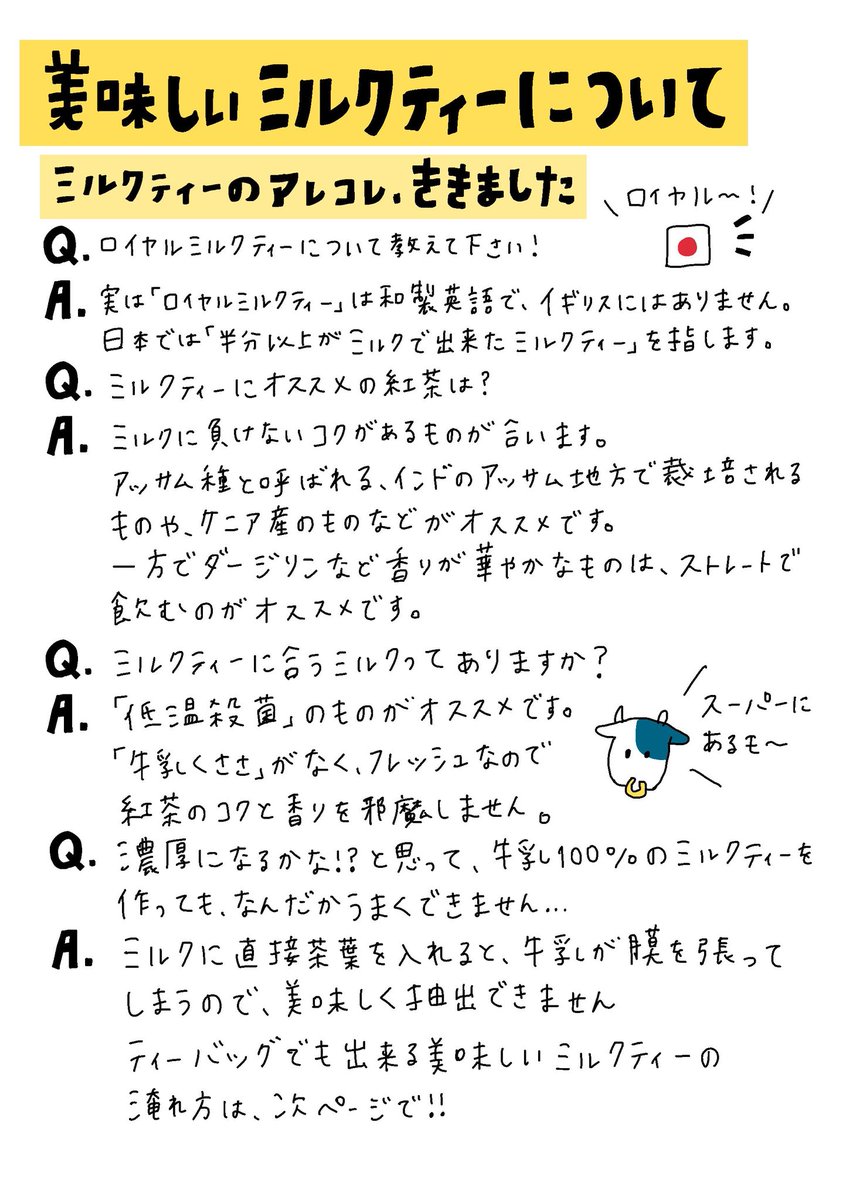 美味しいミルクティーについて
ミルクティーのアレコレ、ききました
ロイヤル〜!
Q. ロイヤルミルクティーについて教えて下さい!
A. 実は「ロイヤルミルクティー」は和製英語で、イギリスにはありません。
日本では「半分以上がミルクで出来たミルクティー」を指します。
Q. ミルクティーにオススメの紅茶は?
A. ミルクに負けないコクがあるものが合います。
アッサム種と呼ばれる、インドのアッサム地方で栽培される
ものや、ケニア産のものなどがオススメです。
一方でダージリンなど香りが華やかなものは、ストレートで
飲むのがオススメです。
Q. ミルクティーに合うミルクってありますか?
A. 「低温殺菌」のものがオススメです。
「牛乳くささ」がなく、フレッシュなので
紅茶のコクと香りを邪魔しません。
スーパーに
あるモ〜
Q. 濃厚になるかな!?と思って、牛乳100%のミルクティーを
作っても、なんだかうまくできません...
A. ミルクに直接茶葉を入れると、牛乳が膜を張って
しまうので、美味しく抽出できません
ティーバッグでも出来る美味しいミルクティーの
淹れ方は、次ページで!!